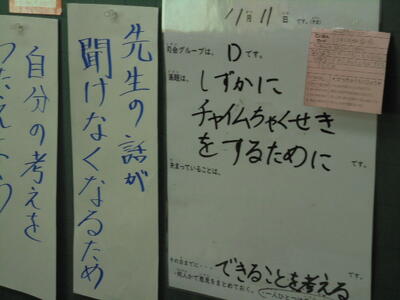 11月11日です。
司会グループは、Dです。
議題は、
しずかに
チャイムちゃくせき
をするために
です。
決まっていることは、
です。
その日までに・・・
できることを考える
・何人かで意見をまとめておく。
先生の話が
聞けなくなるため
自分の考えを
つたえよう